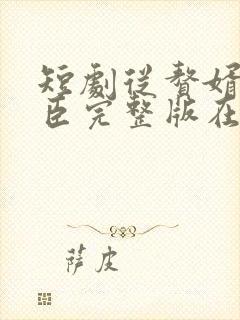 短劇從贅婿
臣完整版在
萨皮